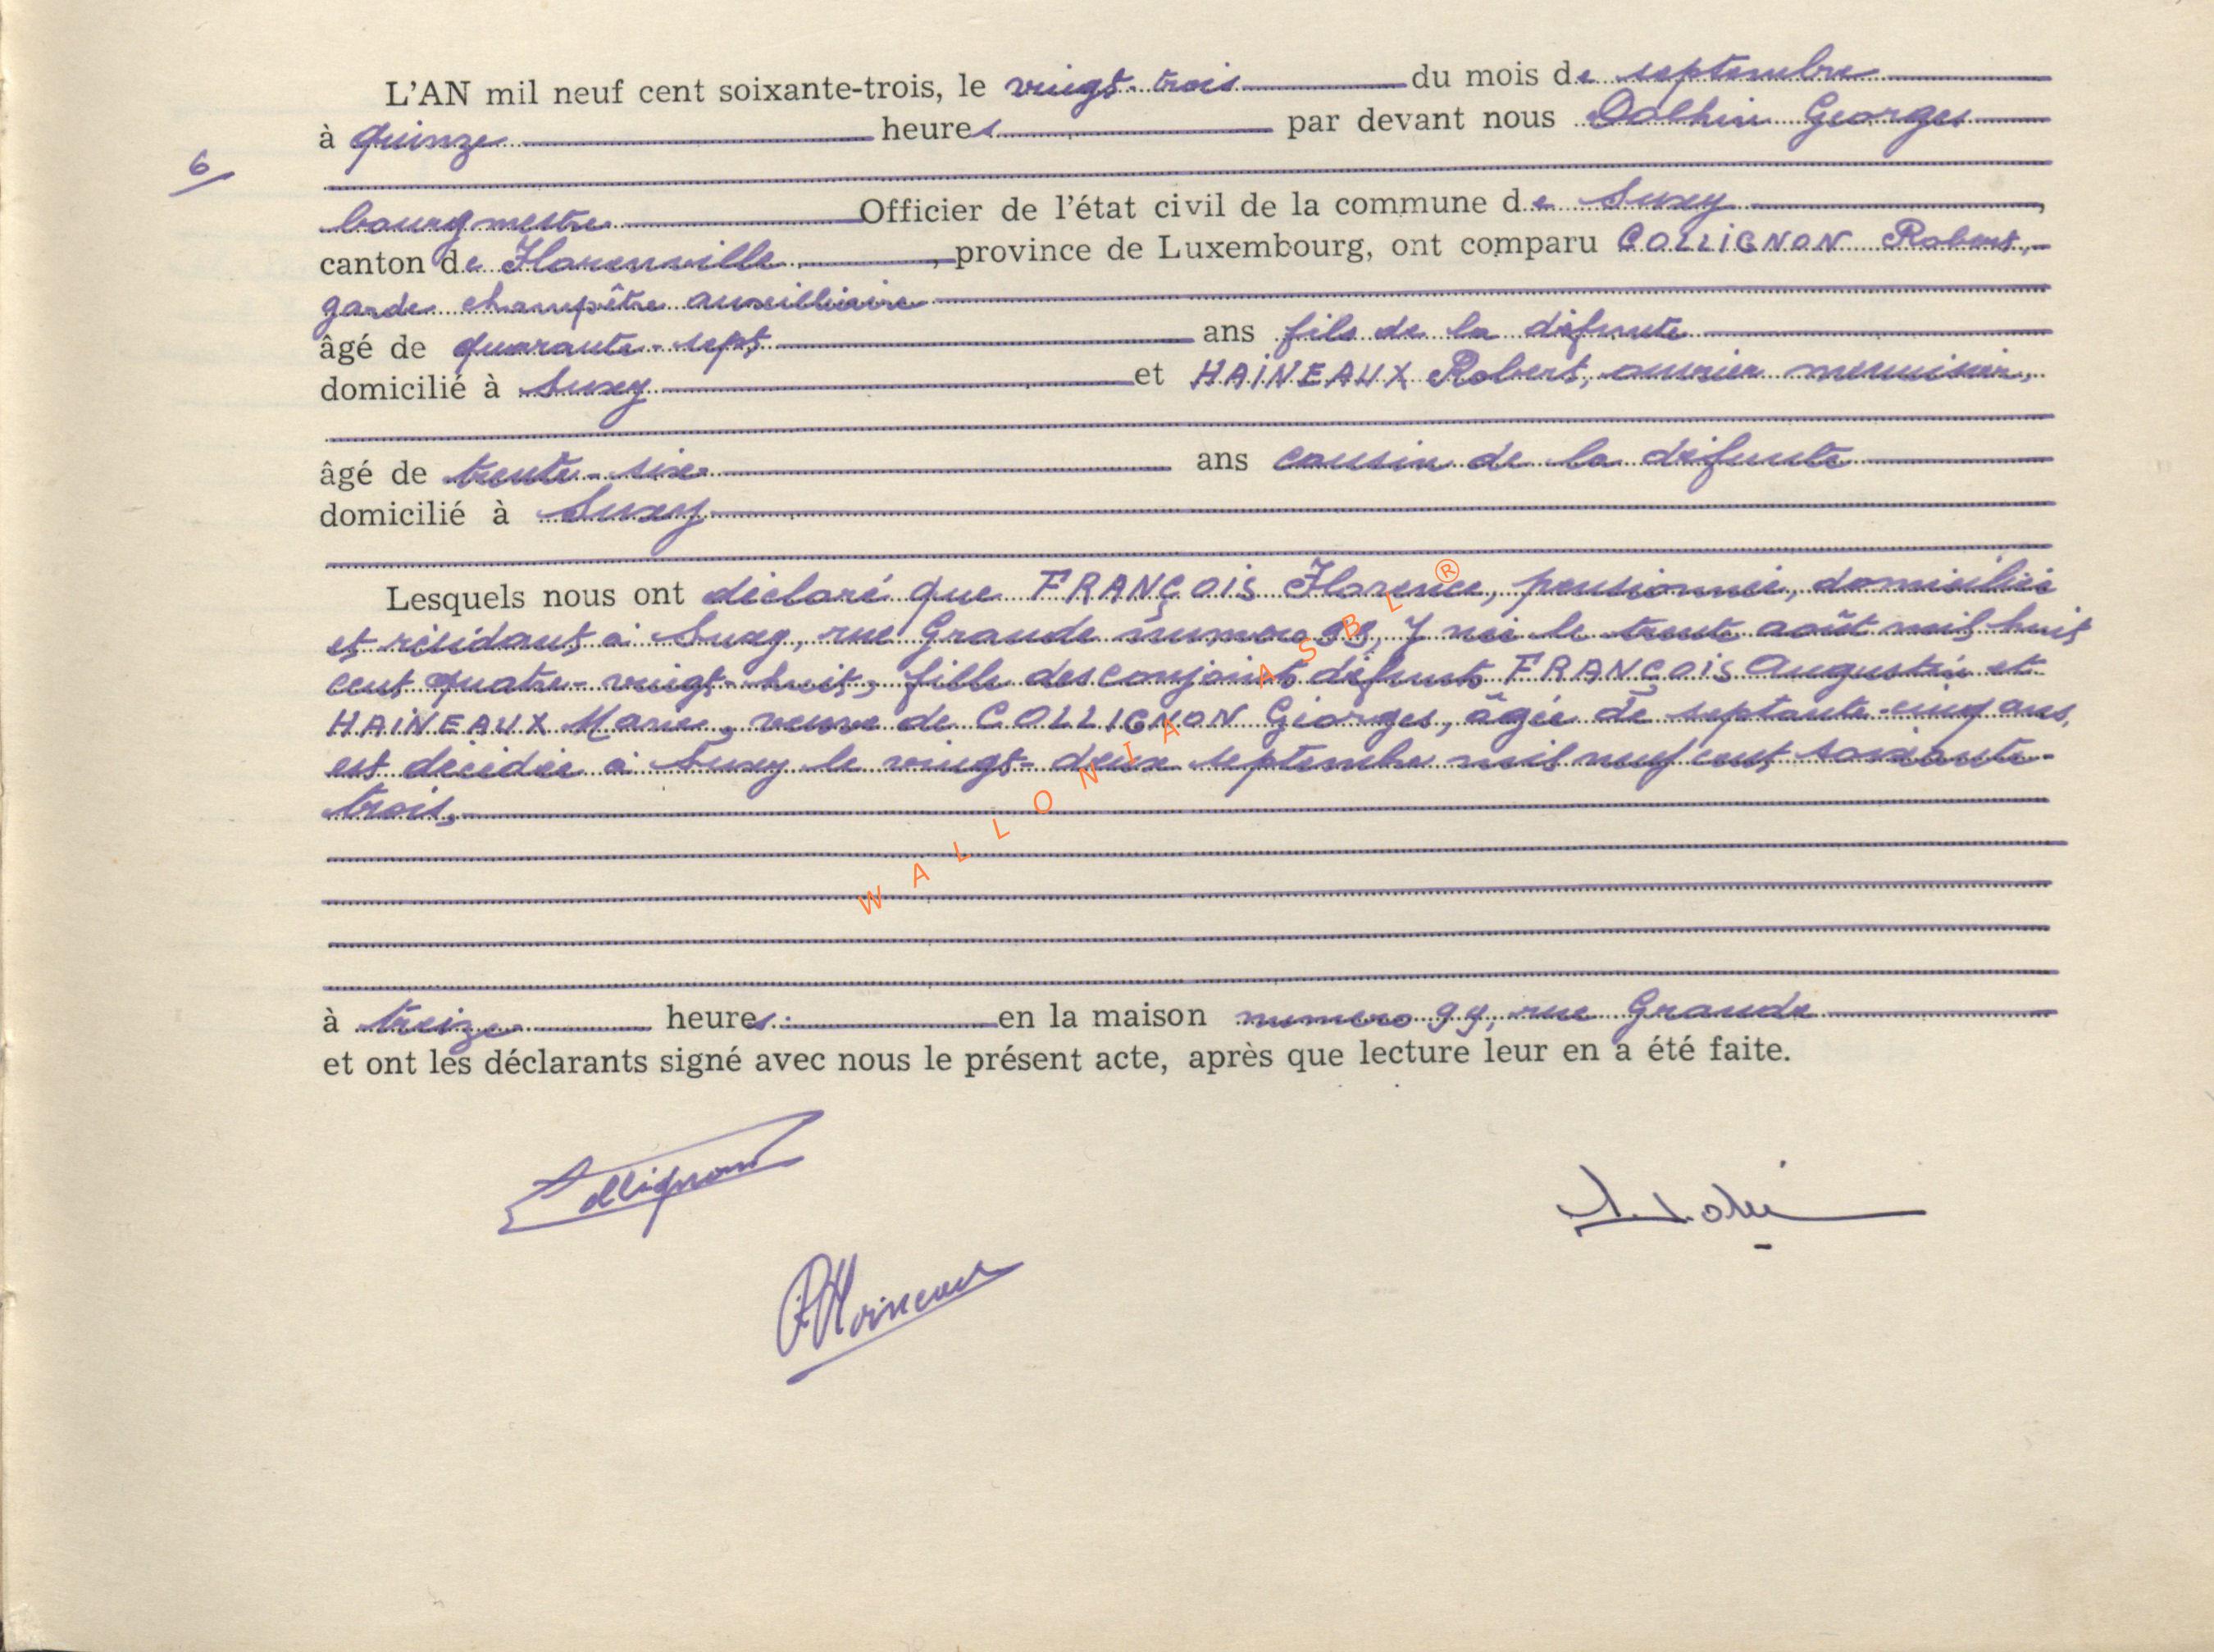 L'AN mil neuf cent soixante-trois, le vingt-trois du mois de septembre
à quinze heures par devant nous Dolhin Georges
6
bourgmestre Officier de l'état civil de la commune de Suxy,
canton de Florenville, province de Luxembourg, ont comparu COLLIGNON Robert,
garde champêtre auxilliaire
âgé de quarante-sept ans fils de la défunte
domicilié à Suxy et HAINEAUX Robert, ouvrier menuisier,
âgé de trente-six ans cousin de la défunte
domicilié à Suxy
Lesquels nous ont déclaré que FRANÇOIS Florence, pensionnée, domiciliée
et résidant à Suxy, rue Grande numéro 99, y née le trente août mil huit
cent quatre-vingt-huit, fille des conjoints défunts FRANÇOIS Augustin et
HAINEAUX Marie, veuve de COLLIGNON Georges, âgée de septante-cinq ans,
est décédée à Suxy le vingt-deux septembre mil neuf cent soixante-
trois,
à treize heures en la maison numéro 99, rue Grande
et ont les déclarants signé avec nous le présent acte, après que lecture leur en a été faite.
Collignon
R Haineaux
WALLONIA ASBL ®